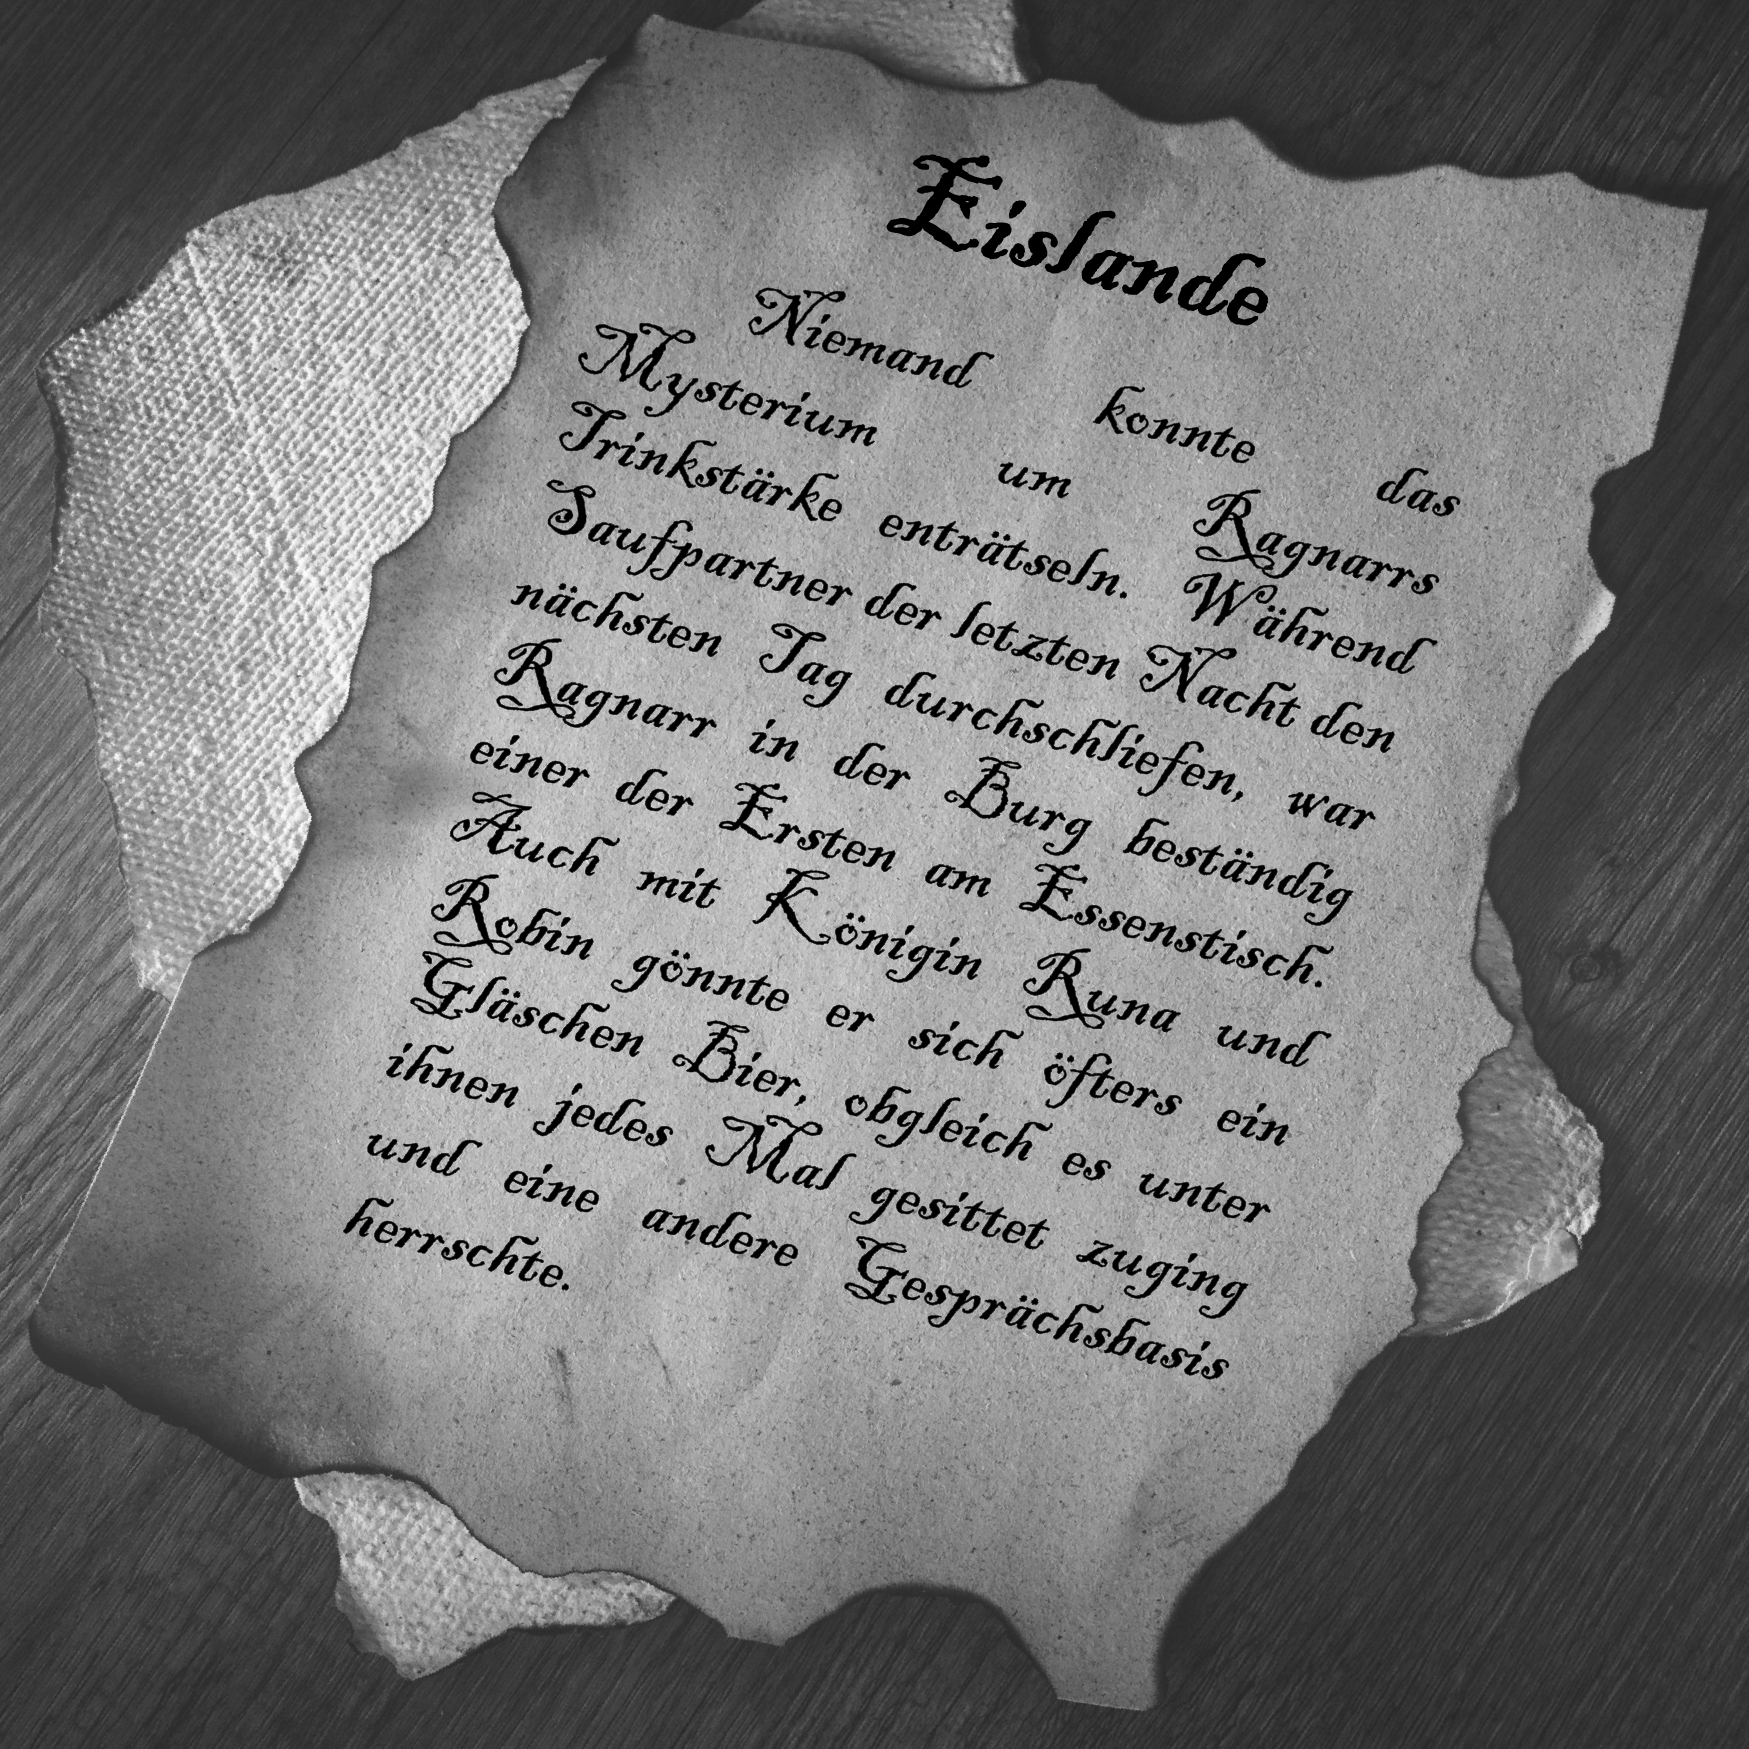 Eislande
Niemand konnte das
Mysterium um Ragnarrs
Trinkstärke enträtseln. Während
Saufpartner der letzten Nacht den
nächsten Tag durchschliefen, war
Ragnarr in der Burg beständig
einer der Ersten am Essenstisch.
Auch mit Königin Runa und
Robin gönnte er sich öfters ein
Gläschen Bier, obgleich es unter
ihnen jedes Mal gesittet zuging
und eine andere Gesprächsbasis
herrschte.